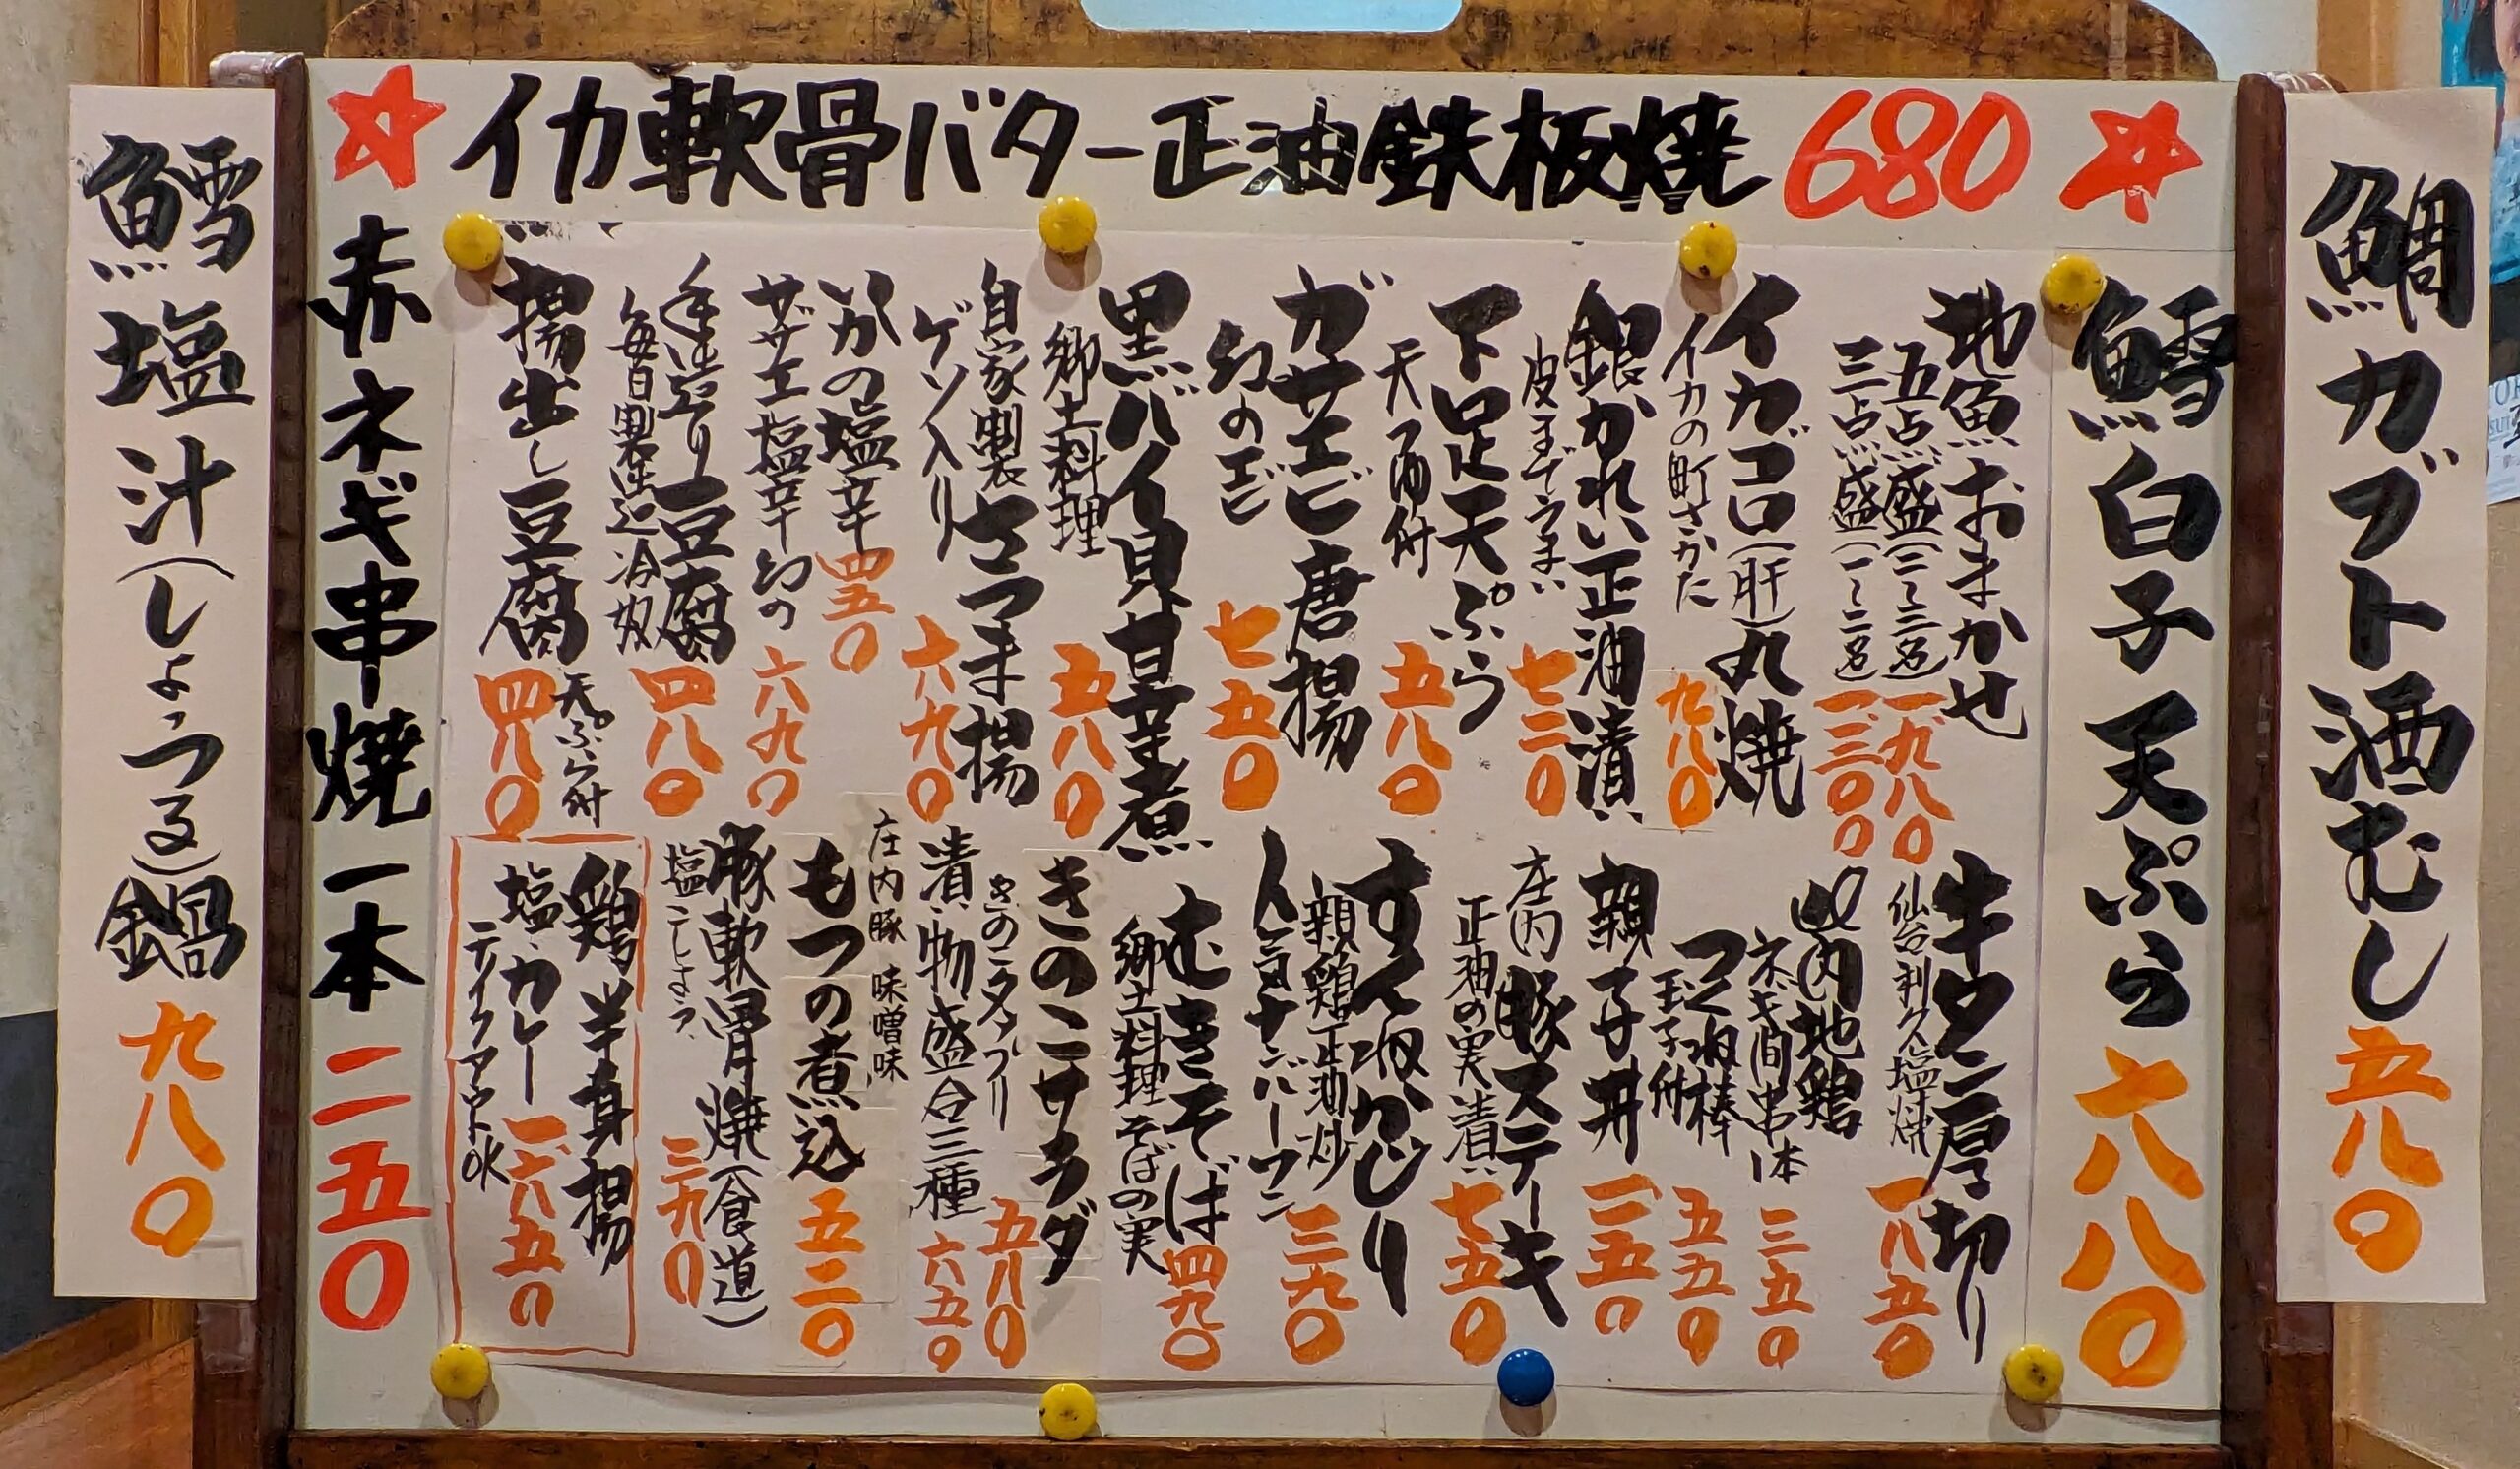 ☆イカ軟骨バター正油鉄板焼 680☆
鯛カブト酒むし 五八〇
鱈白子天ぷら 六八〇
地魚おまかせ
五点盛(二〜三名) 一、九八〇
三点盛(一〜二名) 一、三〇〇
イカゴロ(肝)丸焼
イカの町さかた 九八〇
銀がれい正油漬
皮までうまい 七二〇
下足天ぷら
天つゆ付 五八〇
ガサエビ唐揚
幻のエビ 七五〇
黒バイ貝甘辛煮
郷土料理 五八〇
自家製さつま揚
ゲソ入り 六九〇
いかの塩辛 四五〇
サザエ塩辛 幻の 六九〇
手造り豆腐
毎日製造 冷奴 四八〇
天ぷら付
揚出し豆腐 四八〇
牛タン厚切り
仙台利久塩焼 一八五〇
庄内地鶏
ネギ間串一本 三五〇
つくね棒
玉子付 五五〇
親子丼 一一五〇
庄内豚ステーキ
正油の実漬 七五〇
すねかじり
親鶏正油炒
人気ナンバーワン 三九〇
むきそば
郷土料理 そばの実 四九〇
きのこサラダ
きのこタップリ 五八〇
漬物盛合三種 六五〇
庄内豚 味噌味
もつの煮込 五二〇
豚軟骨焼(食道)
塩こしょう 三九〇
鶏半身揚
塩・カレー 一六五〇
テイクアウトOK
赤ネギ串焼一本 二五〇
鱈塩汁(しょっつる)鍋 九八〇